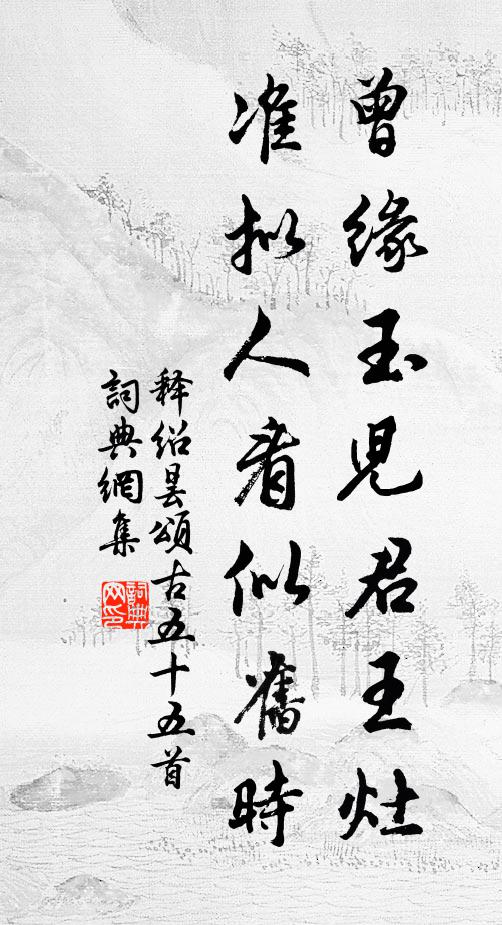 曾緣玉兒君王灶
准拟人看似舊時
释绍昙頌古五十五首
詞典網集
詞典网印